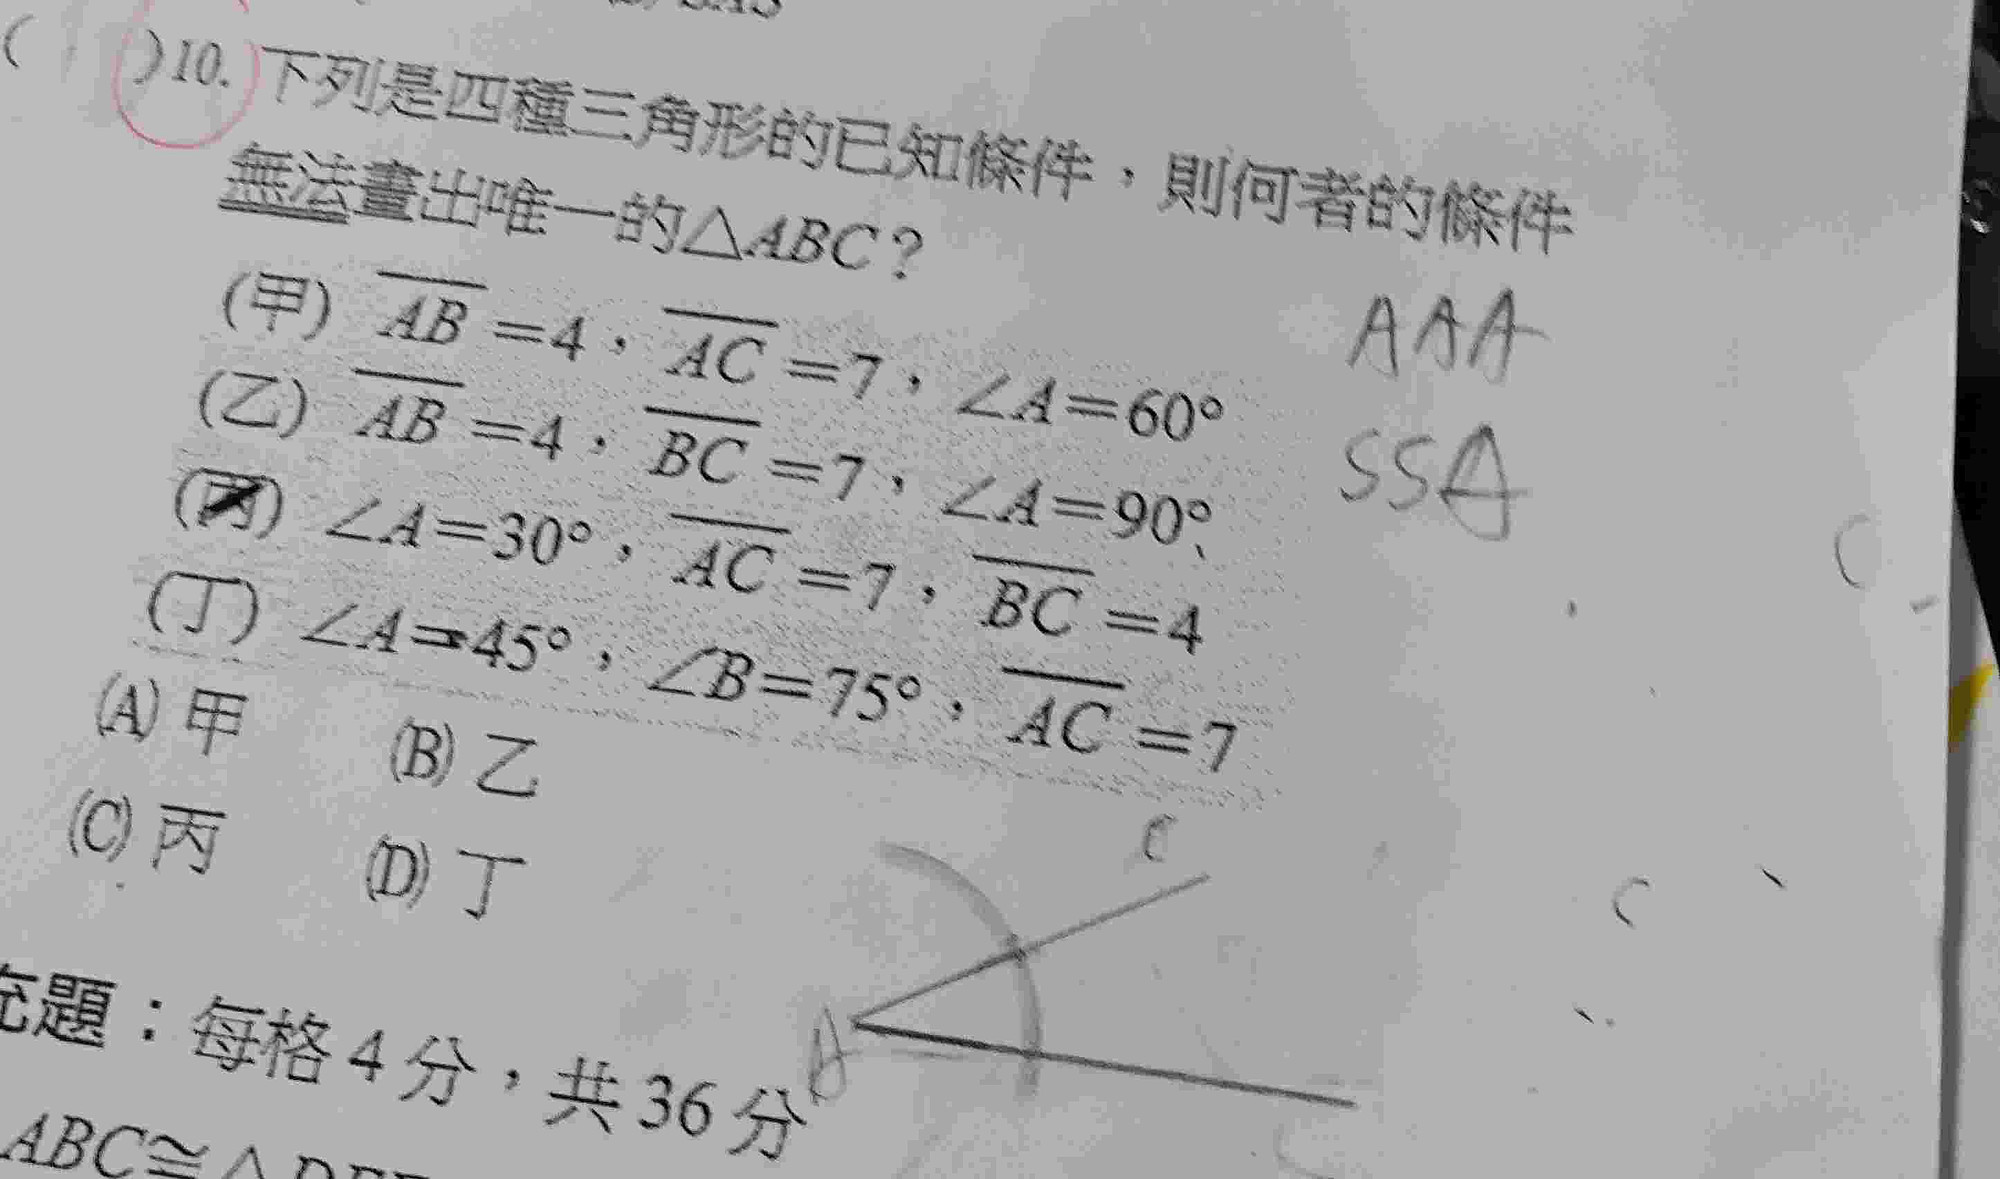 ( )10. 下列是四種三角形的已知條件，則何者的條件
無法畫出唯一的△ABC？
(甲) AB=4，AC=7，∠A=60°
(乙) AB=4，BC=7，∠A=90°、
(丙) ∠A=30°，AC=7，BC=4
(丁) ∠A=45°，∠B=75°，AC=7
AAA
SSA
(A) 甲 (B) 乙
(C) 丙 (D) 丁
C
A
C
充題：每格4分，共36分
ABC≅△